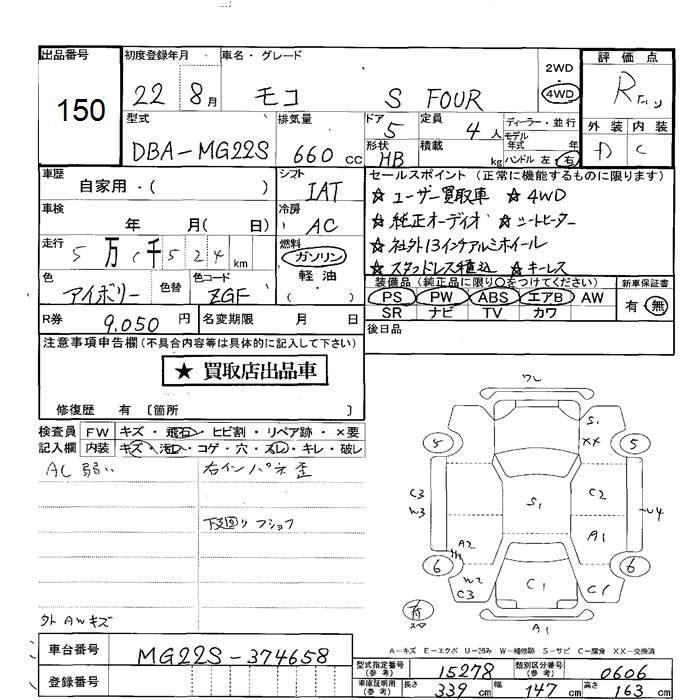 出品番号 初度登録年月 車名・グレード 評価点
150 22 8月 モコ S FOUR 2WD・4WD R
型式 排気量 ドア 定員 ディーラー・並行 外装 内装
DBA-MG22S 660cc 5 4人 モデル年式 年 D C
形状 HB 積載 kg ハンドル 左・右
車歴 シフト セールスポイント(正常に機能するものに限ります)
自家用・( ) IAT ☆ユーザー買取車 ☆4WD
車検 冷房 ☆純正オーディオ ☆シートヒーター
年 月( 日) AC ☆社外13インチアルミホイール
走行 5万1千524km 燃料 ガソリン・軽油・( ) ☆スタッドレス積込 ☆キーレス
色 アイボリー 色替 色コード ZGF 装備品(純正品に限り○をつけてください) 新車保証書
PS PW ABS エアB AW 有・無
SR ナビ TV カワ
R券 9,050円 名変期限 月 日 後日品
注意事項申告欄(不具合内容等は具体的に記入して下さい)
★ 買取店出品車
修復歴 有 〔箇所 〕
検査員 FW キズ・飛石・ヒビ割・リペア跡・×要
記入欄 内装 キズ・汚レ・コゲ・穴・スレ・キレ・破レ
AC弱い 右インパネ歪
下廻りフショク
外 AWキズ
ワレ
S1
XX
5 5
C3 C2
W3 S1 U4
A2 A1
6 6
W2 C1 C1
C3
有
スペア
A1
A-キズ E-エクボ U-凹み W-補修跡 S-サビ C-腐食 XX-交換済
車台番号 MG22S-374658
登録番号
型式指定番号(参考) 15278 類別区分番号(参考) 0606
車庫証明用(参考) 長さ 339cm 幅 147cm 高さ 163cm